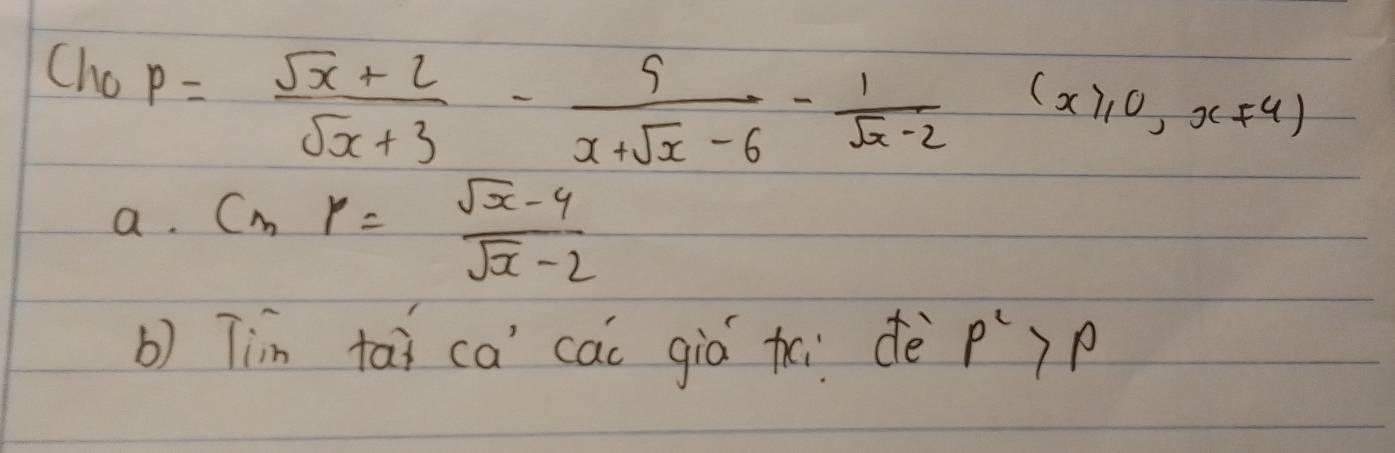 Cho P = \frac{\sqrt{x} + 2}{\sqrt{x} + 3} - \frac{5}{x + \sqrt{x} - 6} - \frac{1}{\sqrt{x} - 2} (x ≥ 0, x ≠ 4)
a. Cm P = \frac{\sqrt{x} - 4}{\sqrt{x} - 2}
b) Tìm tất cả các giá trị để P² > P